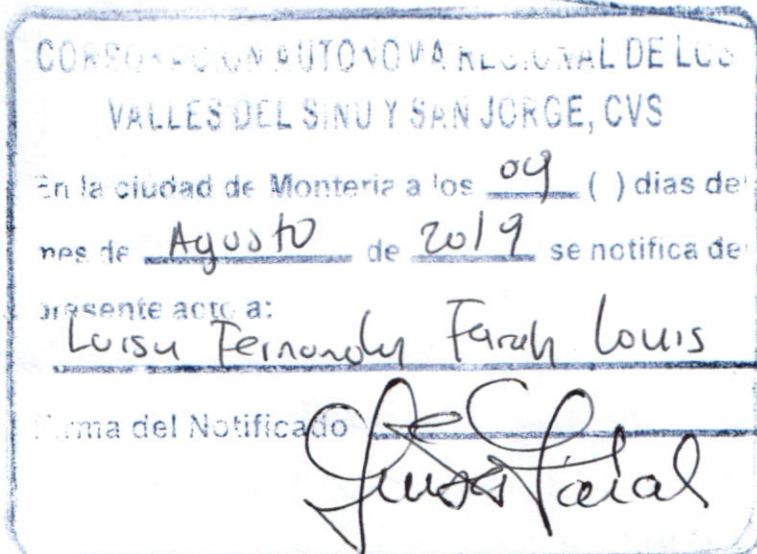 CORPORACION AUTONOMA REGIONAL DE LOS
VALLES DEL SINU Y SAN JORGE, CVS
En la ciudad de Monteria a los 09 ( ) dias del
mes de Agosto de 2019 se notifica del
presente acto a:
Luisa Fernanda Farah Louis
Firma del Notificado